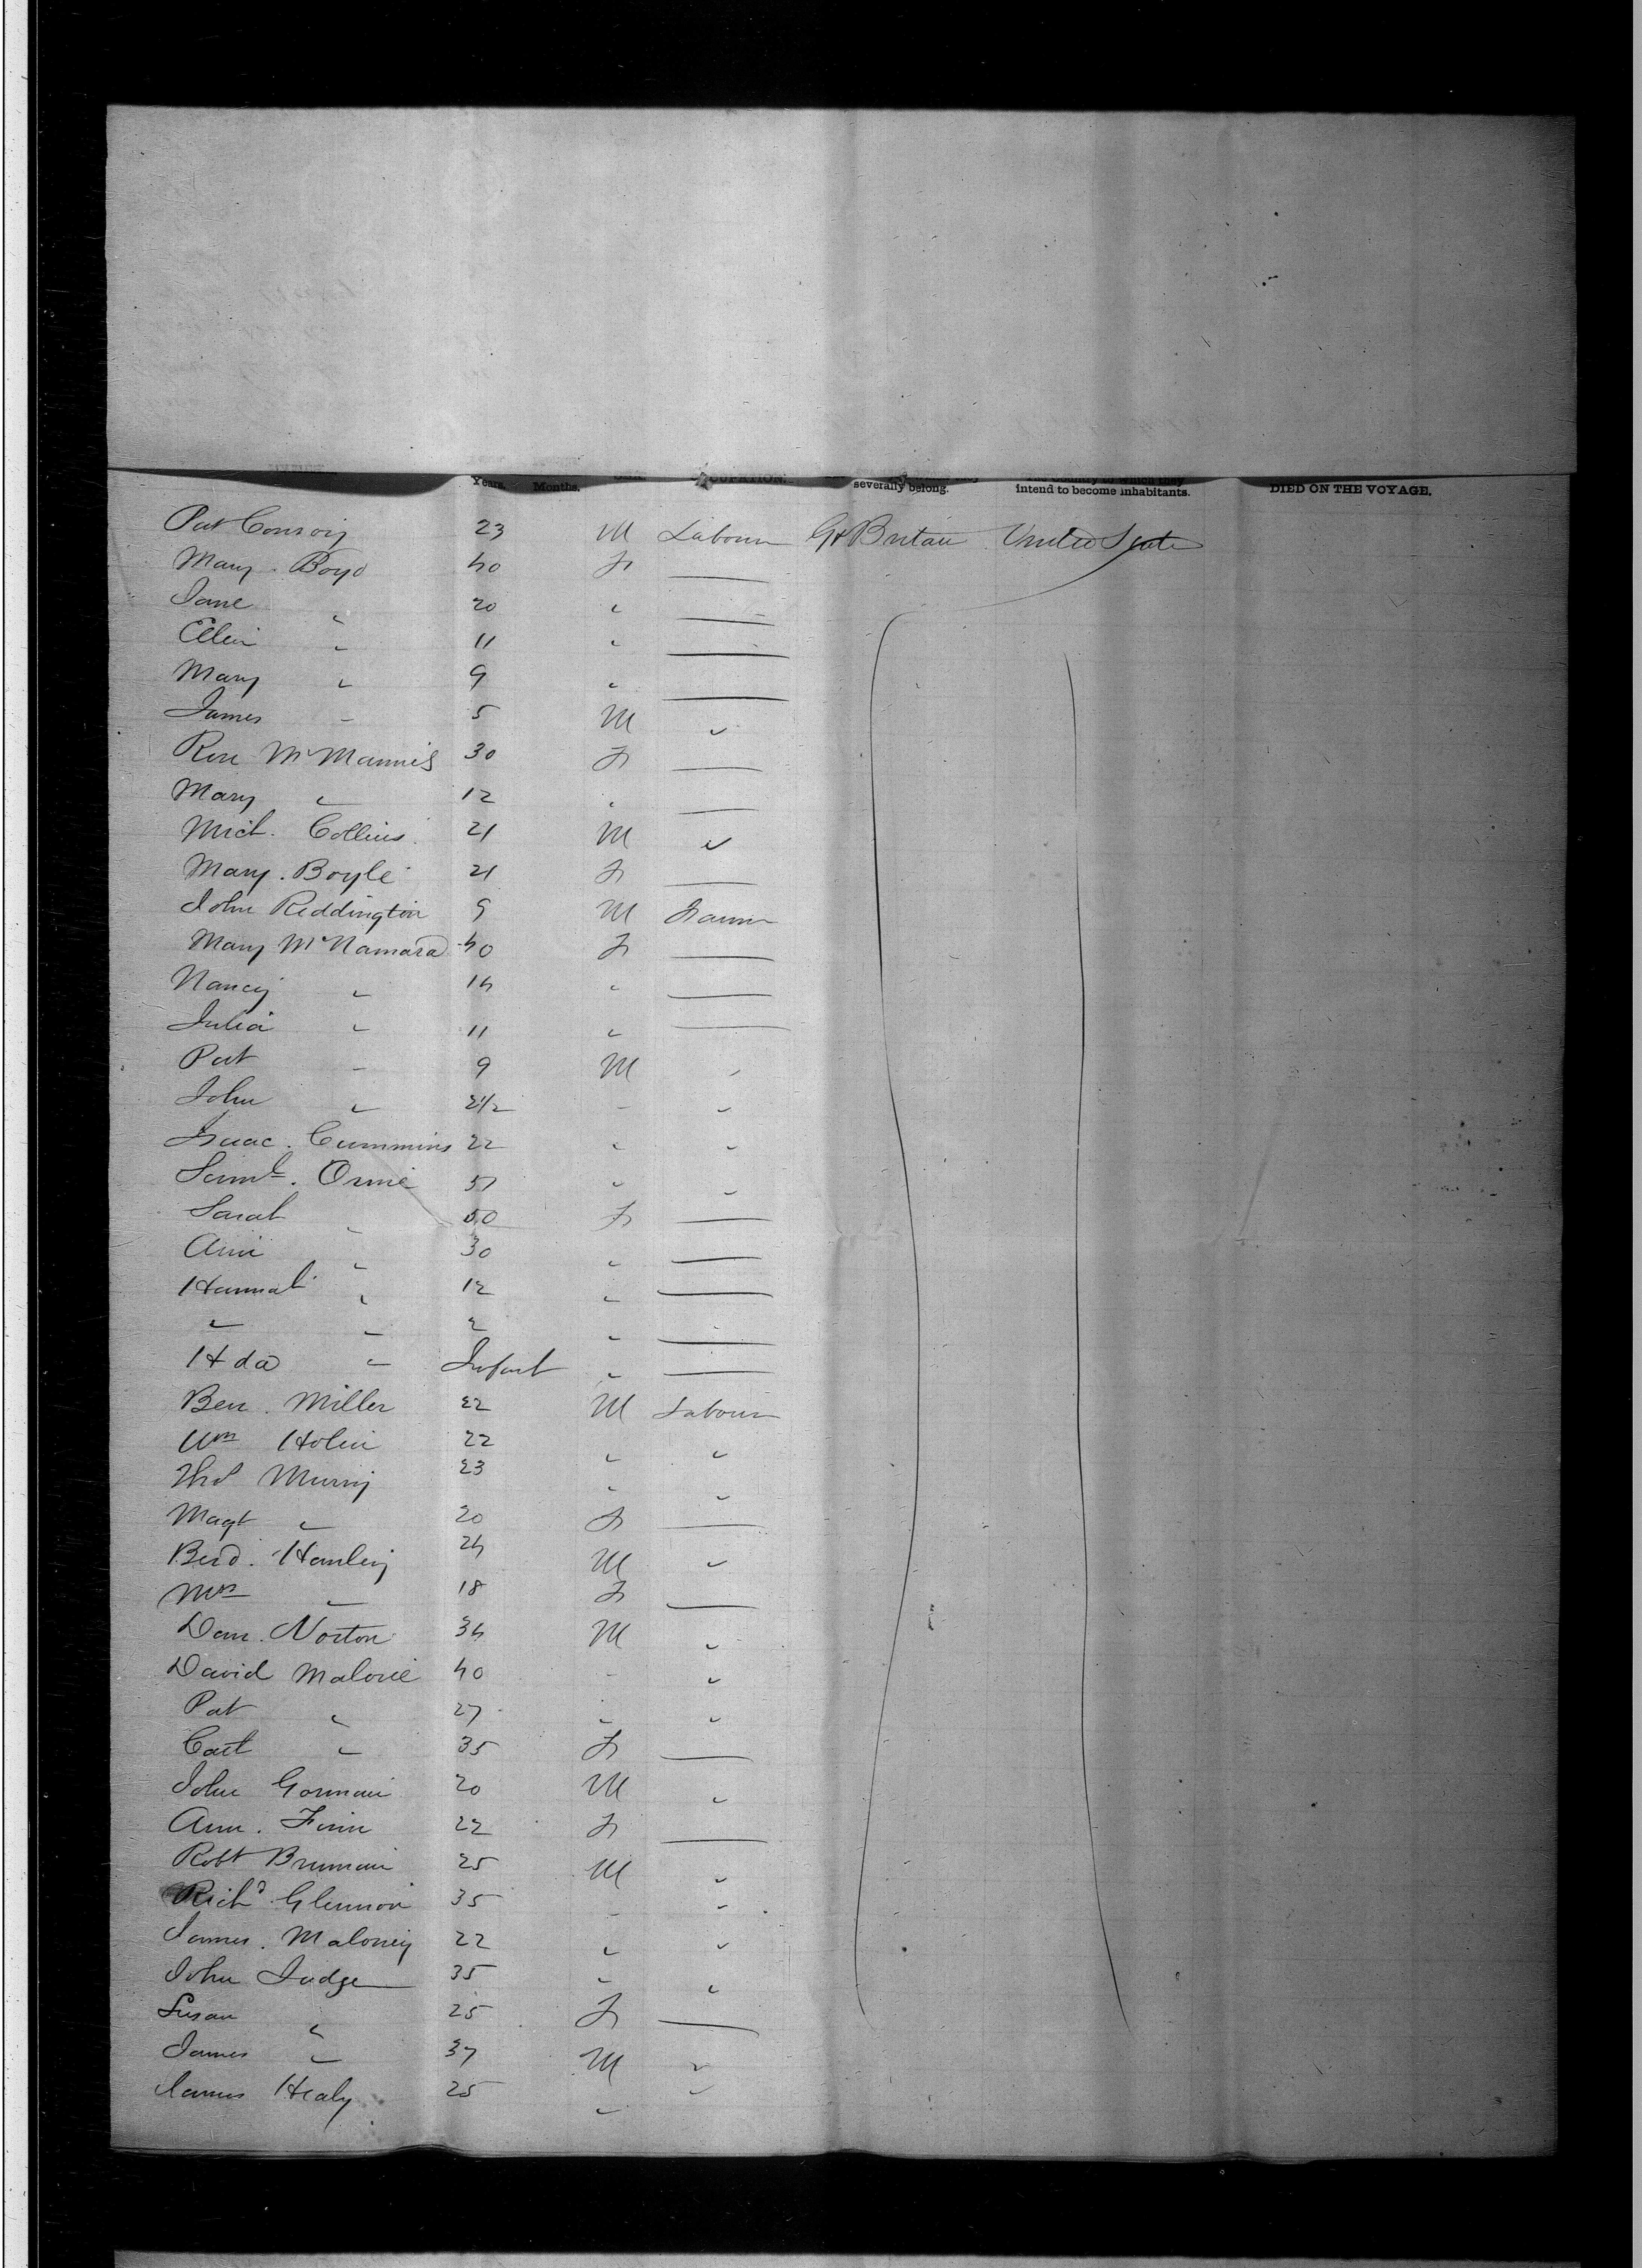 Years. Months. severally belong. intend to become inhabitants. DIED ON THE VOYAGE.
Pat Conroy 23 M Labourer Gt Britain United States
Mary Boyd 40 F —
Jane " 20 " —
Ellen " 11 " —
Mary " 9 " —
James " 5 M "
Rose McMannis 30 F —
Mary " 12 " —
Mich. Collins 21 M "
Mary Boyle 21 F —
John Reddington 9 M Farmer
Mary McNamara 40 F —
Nancy " 14 " —
Julia " 11 " —
Pat " 9 M "
John " 2 1/2 " "
Isaac Cummins 22 " "
Saml. Orme 57 " "
Sarah " 50 F —
Ann " 30 " —
Hannah " 12 " —
" " 2 " —
" Infant " —
Ben. Miller 22 M Labourer
Wm 22 " "
Thos Murry 23 " "
Magt " 20 F —
Berd. Hanley 24 M "
Mrs " 18 F —
Dan. Norton 34 M "
David Malone 40 " "
Pat " 27 " "
Cath " 35 F —
John Gorman 20 M "
Ann. Finn 22 F —
Robt Brennan 25 M "
Richd Glennon 35 " "
James. Maloney 22 " "
John Judge 35 " "
Susan " 25 F —
James " 37 M "
James Healy 25 " "